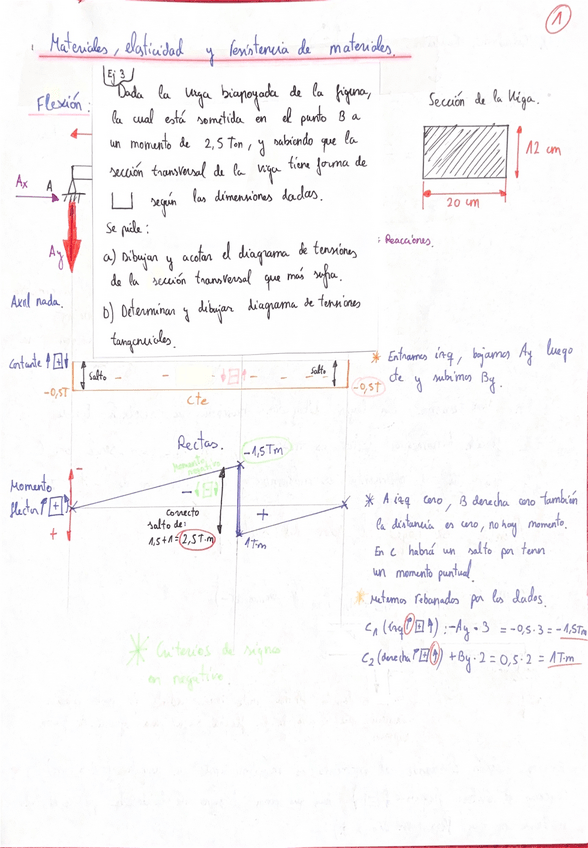 1
Materiales, elasticidad y resistencia de materiales.
Ej 3
Flexión:
Dada la viga biapoyada de la figura,
la cual está sometida en el punto B a
un momento de 2,5 Ton, y sabiendo que la
sección transversal de la viga tiene forma de
según las dimensiones dadas.
Se pide:
a) Dibujar y acotar el diagrama de tensiones
de la sección transversal que más sufra.
b) Determinar y dibujar diagrama de tensiones
tangenciales.
Sección de la Viga.
12 cm
20 cm
Ax A
Ay
: Reacciones.
Axil nada.
Cortante +
salto
salto
-0,5T
-0,5T
cte
* Entramos izq, bajamos Ay luego
cte y subimos By.
Rectas.
-1,5Tm
Momento
flector +
-
+
-
+
correcto
salto de:
1,5+1=2,5T.m
1T.m
* A izq cero, B derecha cero también
la distancia es cero, no hay momento.
En C habrá un salto por tener
un momento puntual.
* Metemos rebanadas por los lados.
C1 (izq +): -Ay·3 = -0,5·3 = -1,5Tm
C2 (derecha +) +By·2 = 0,5·2 = 1T.m
* Criterios de signos
en negativo.